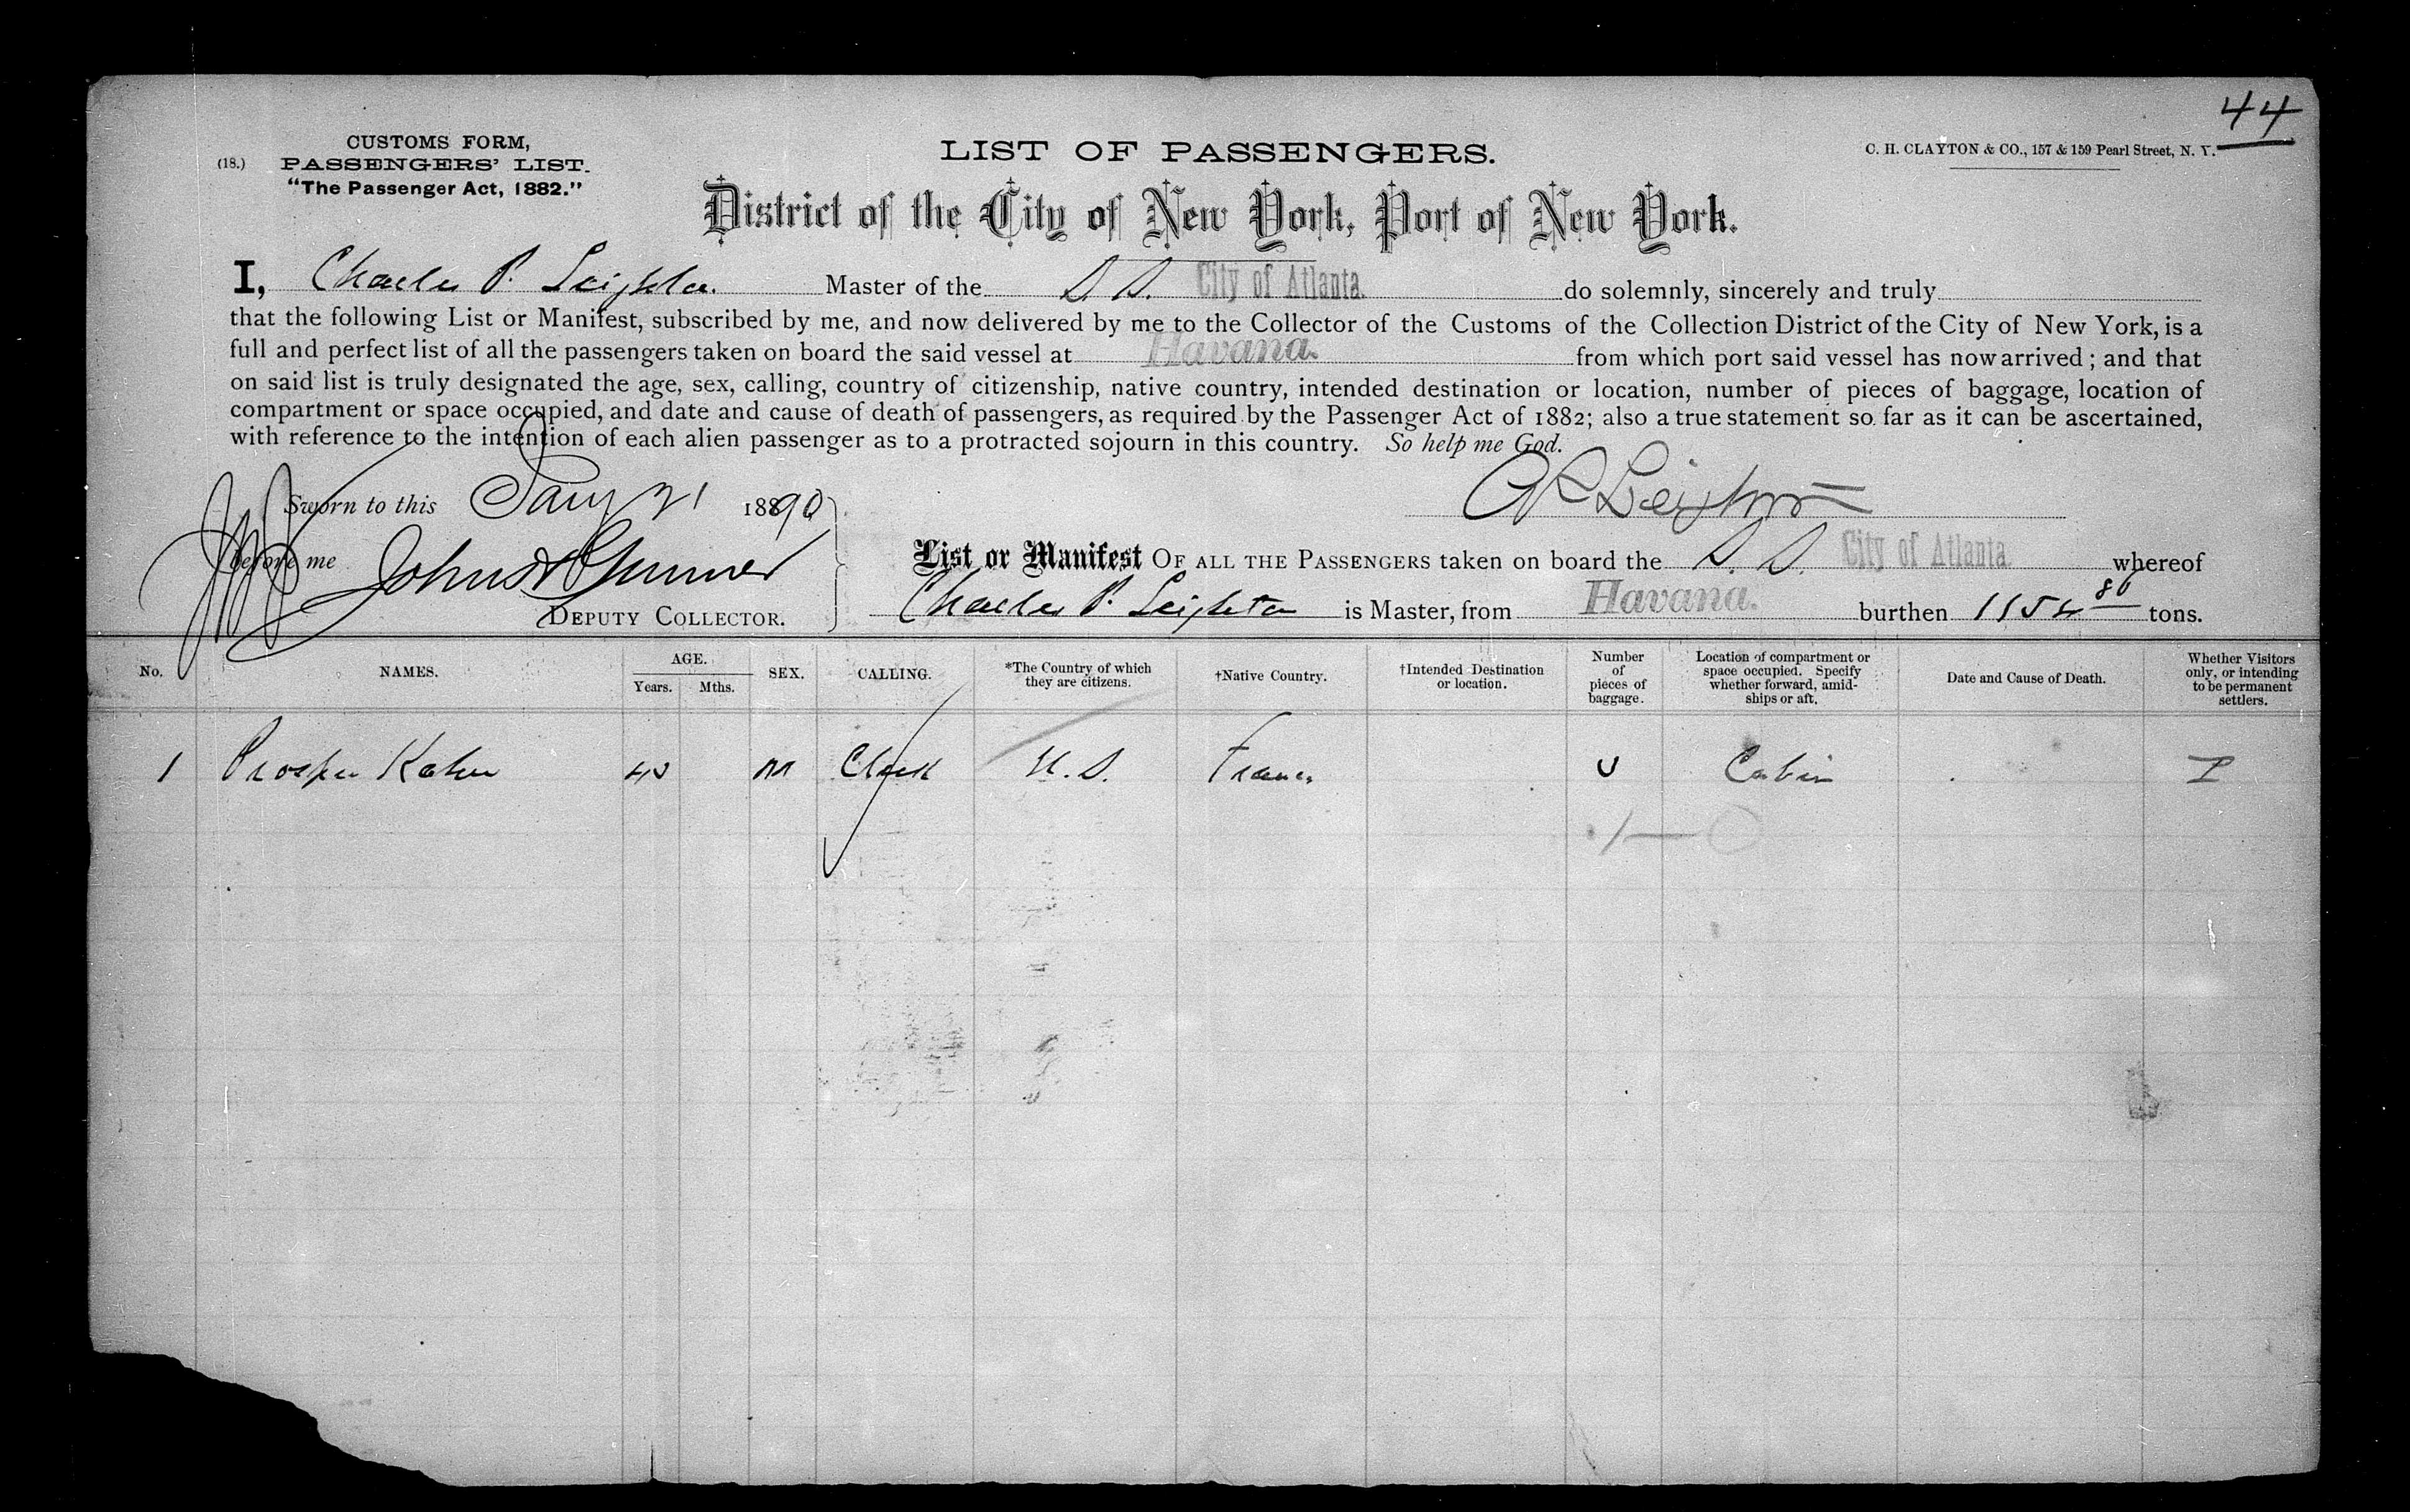 44
CUSTOMS FORM,
(18.) PASSENGERS' LIST.
"The Passenger Act, 1882."
LIST OF PASSENGERS.
C. H. CLAYTON & CO., 157 & 159 Pearl Street, N. Y.
District of the City of New York, Port of New York.
I, Charles P. Leighton Master of the S.S. City of Atlanta do solemnly, sincerely and truly
that the following List or Manifest, subscribed by me, and now delivered by me to the Collector of the Customs of the Collection District of the City of New York, is a
full and perfect list of all the passengers taken on board the said vessel at Havana. from which port said vessel has now arrived; and that
on said list is truly designated the age, sex, calling, country of citizenship, native country, intended destination or location, number of pieces of baggage, location of
compartment or space occupied, and date and cause of death of passengers, as required by the Passenger Act of 1882; also a true statement so far as it can be ascertained,
with reference to the intention of each alien passenger as to a protracted sojourn in this country. So help me God.
Sworn to this Jany 21 1890
CP Leighton
before me John
DEPUTY COLLECTOR.
List or Manifest OF ALL THE PASSENGERS taken on board the S.S. City of Atlanta whereof
Charles P. Leighton is Master, from Havana. burthen 1154 80 tons.
No. NAMES. AGE. Years. Mths. SEX. CALLING. *The Country of which they are citizens. †Native Country. †Intended Destination or location. Number of pieces of baggage. Location of compartment or space occupied. Specify whether forward, amidships or aft. Date and Cause of Death. Whether Visitors only, or intending to be permanent settlers.
1 Prosper Kahn M Clerk U.S. France Cabin